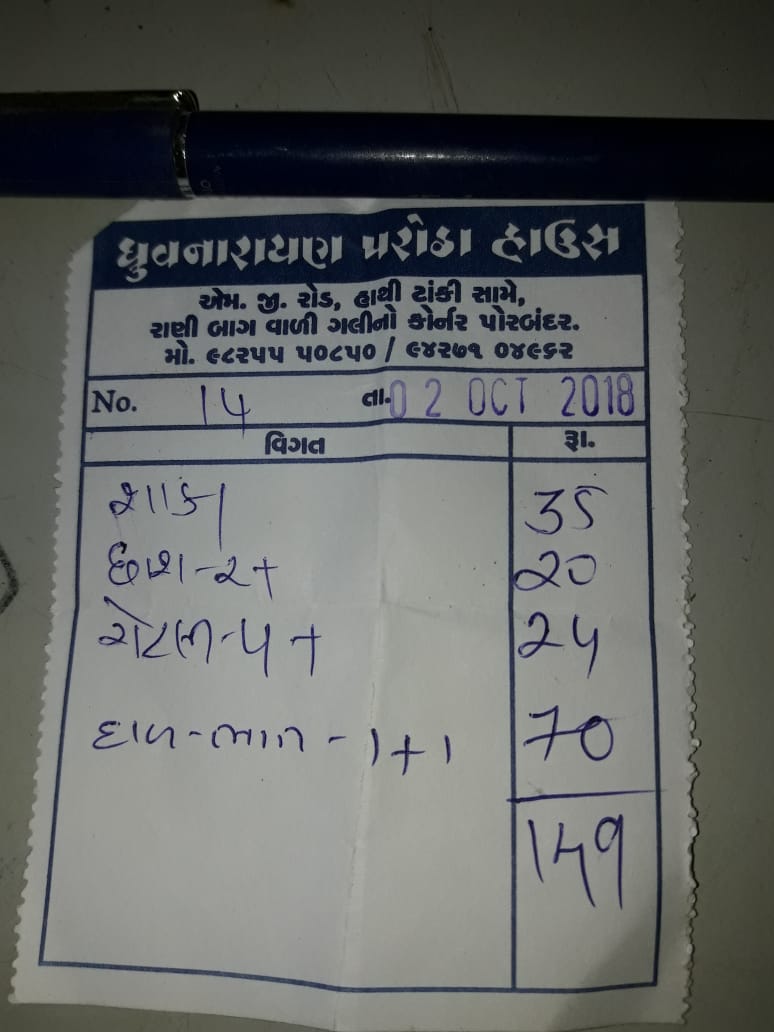 ધ્રુવનારાયણ પરોઠા હાઉસ
એમ. જી. રોડ, હાથી ટાંકી સામે,
રાણી બાગ વાળી ગલીનો કોર્નર પોરબંદર.
મો. ૯૮૨૫૫ ૫૦૮૫૦ / ૯૪૨૭૧ ૦૪૯૬૨
No. 14 તા. 02 OCT 2018
વિગત રૂા.
શાક 1 35
છાશ-2+ 20
રોટલી-4+ 24
દાળ-ભાત-1+1 70
149